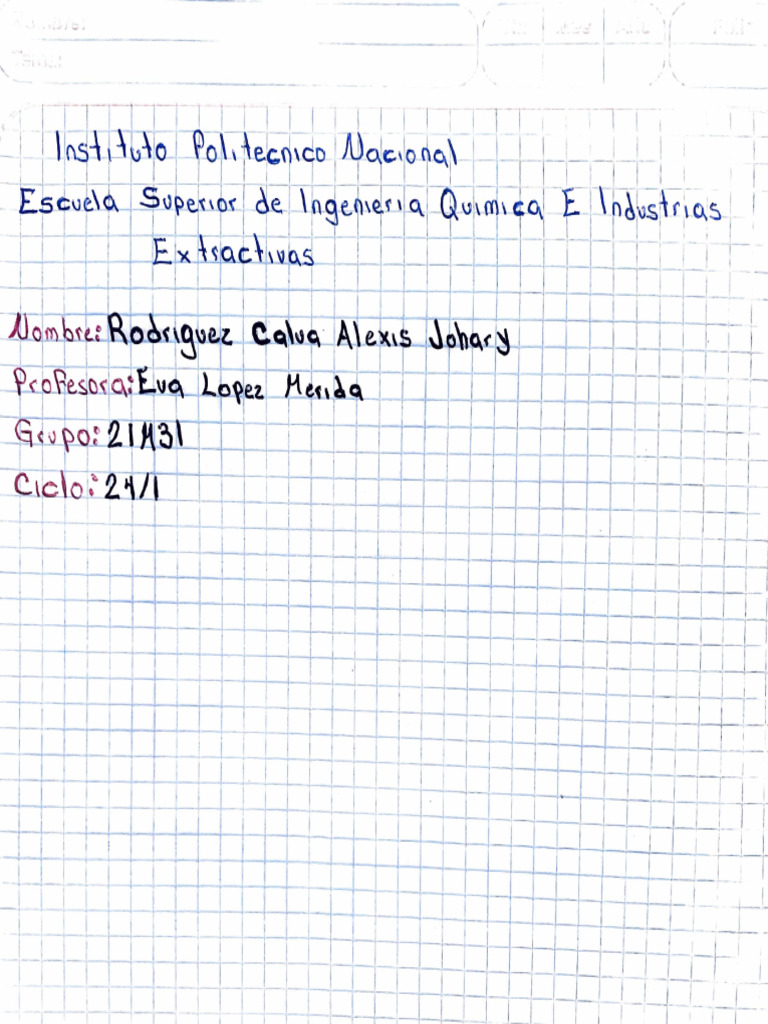 Instituto Politecnico Nacional
Escuela Superior de Ingenieria Quimica E Industrias
Extractivas
Nombre: Rodriguez Calva Alexis Johary
Profesora: Eva Lopez Merida
Grupo: 21M31
Ciclo: 24/1